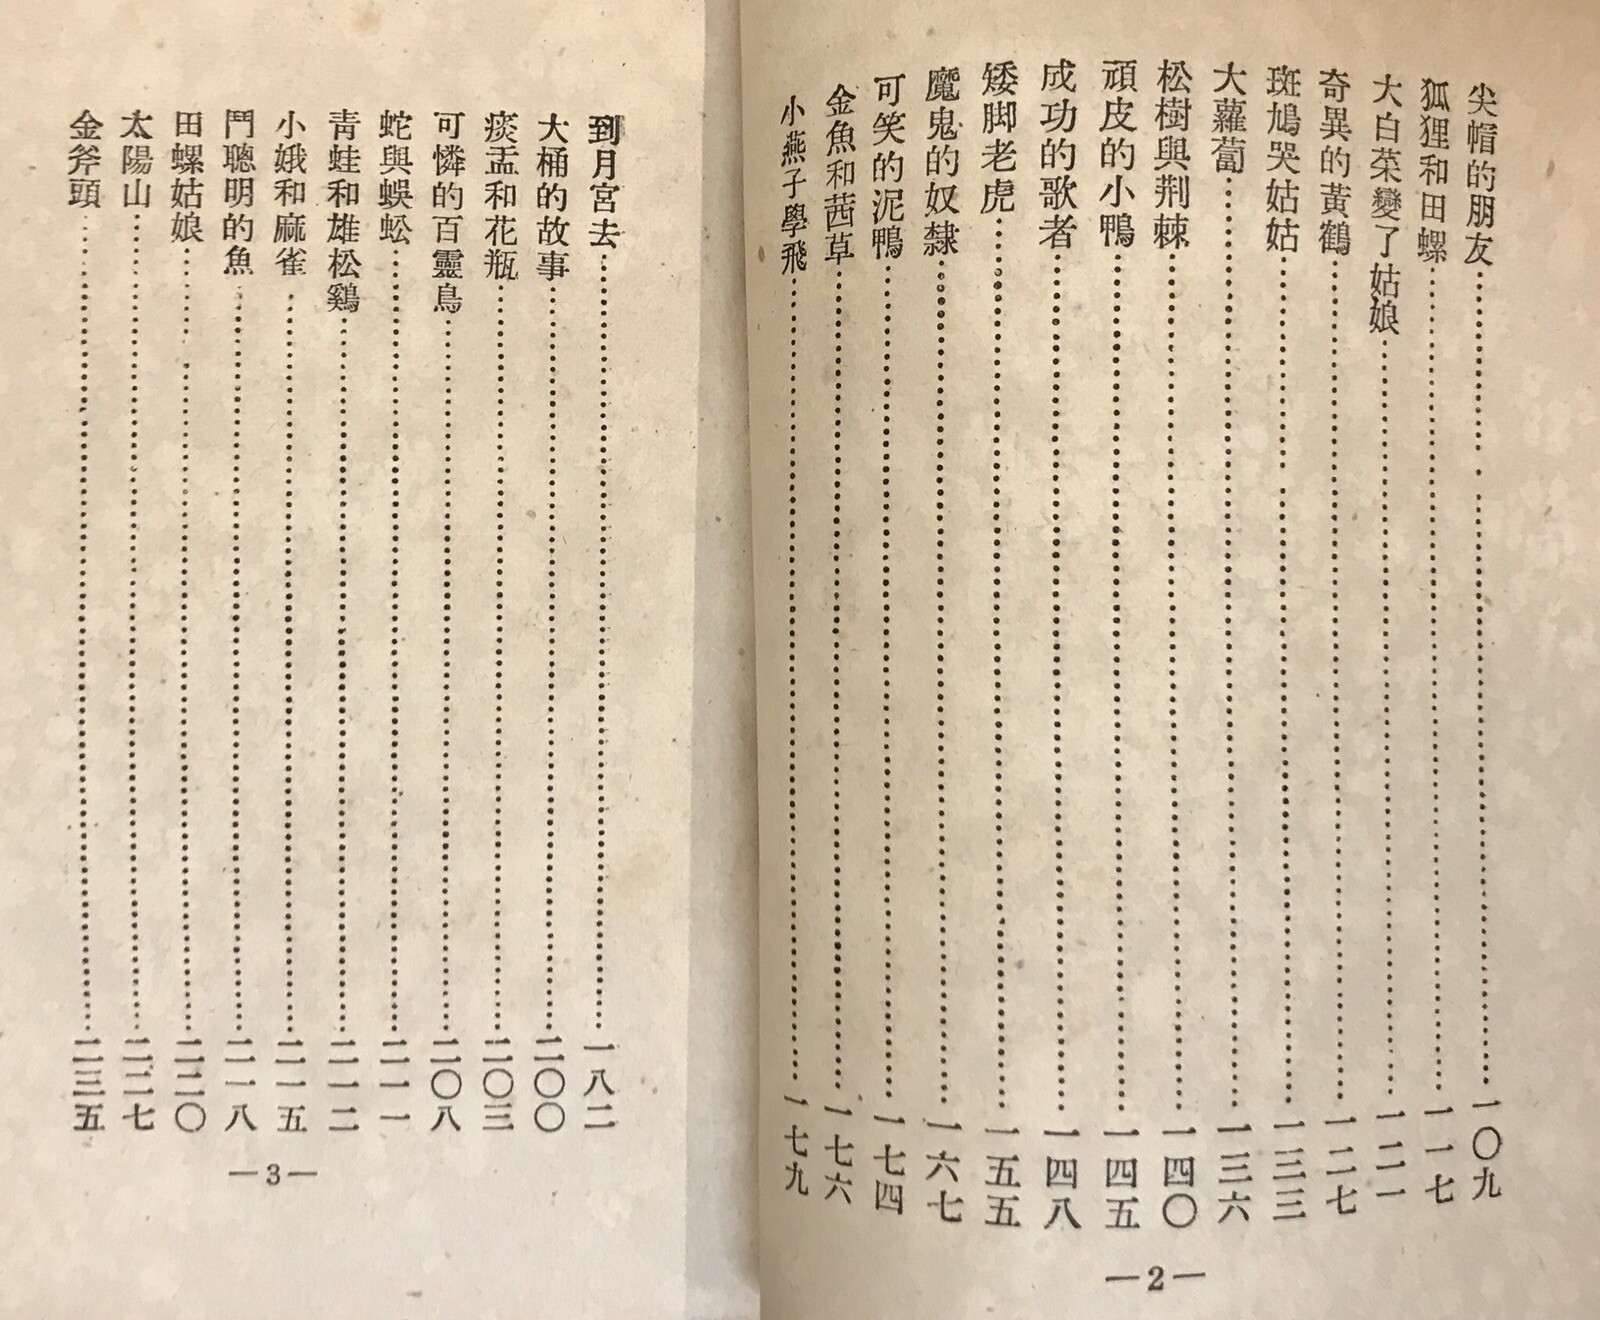 尖帽的朋友⋯⋯⋯⋯一〇九
狐狸和田螺⋯⋯⋯⋯一一七
大白菜變了姑娘⋯⋯⋯⋯一二一
奇異的黃鶴⋯⋯⋯⋯一二七
斑鳩哭姑姑⋯⋯⋯⋯一三三
大蘿蔔⋯⋯⋯⋯一三六
松樹與荆棘⋯⋯⋯⋯一四〇
頑皮的小鴨⋯⋯⋯⋯一四五
成功的歌者⋯⋯⋯⋯一四八
矮脚老虎⋯⋯⋯⋯一五五
魔鬼的奴隸⋯⋯⋯⋯一六七
可笑的泥鴨⋯⋯⋯⋯一七四
金魚和茜草⋯⋯⋯⋯一七六
小燕子學飛⋯⋯⋯⋯一七九
—2—
到月宮去⋯⋯⋯⋯一八二
大桶的故事⋯⋯⋯⋯二〇〇
痰盂和花瓶⋯⋯⋯⋯二〇三
可憐的百靈鳥⋯⋯⋯⋯二〇八
蛇與蜈蚣⋯⋯⋯⋯二一一
靑蛙和雄松鷄⋯⋯⋯⋯二一二
小娥和麻雀⋯⋯⋯⋯二一五
鬥聰明的魚⋯⋯⋯⋯二一八
田螺姑娘⋯⋯⋯⋯二二〇
太陽山⋯⋯⋯⋯二二七
金斧頭⋯⋯⋯⋯二三五
—3—